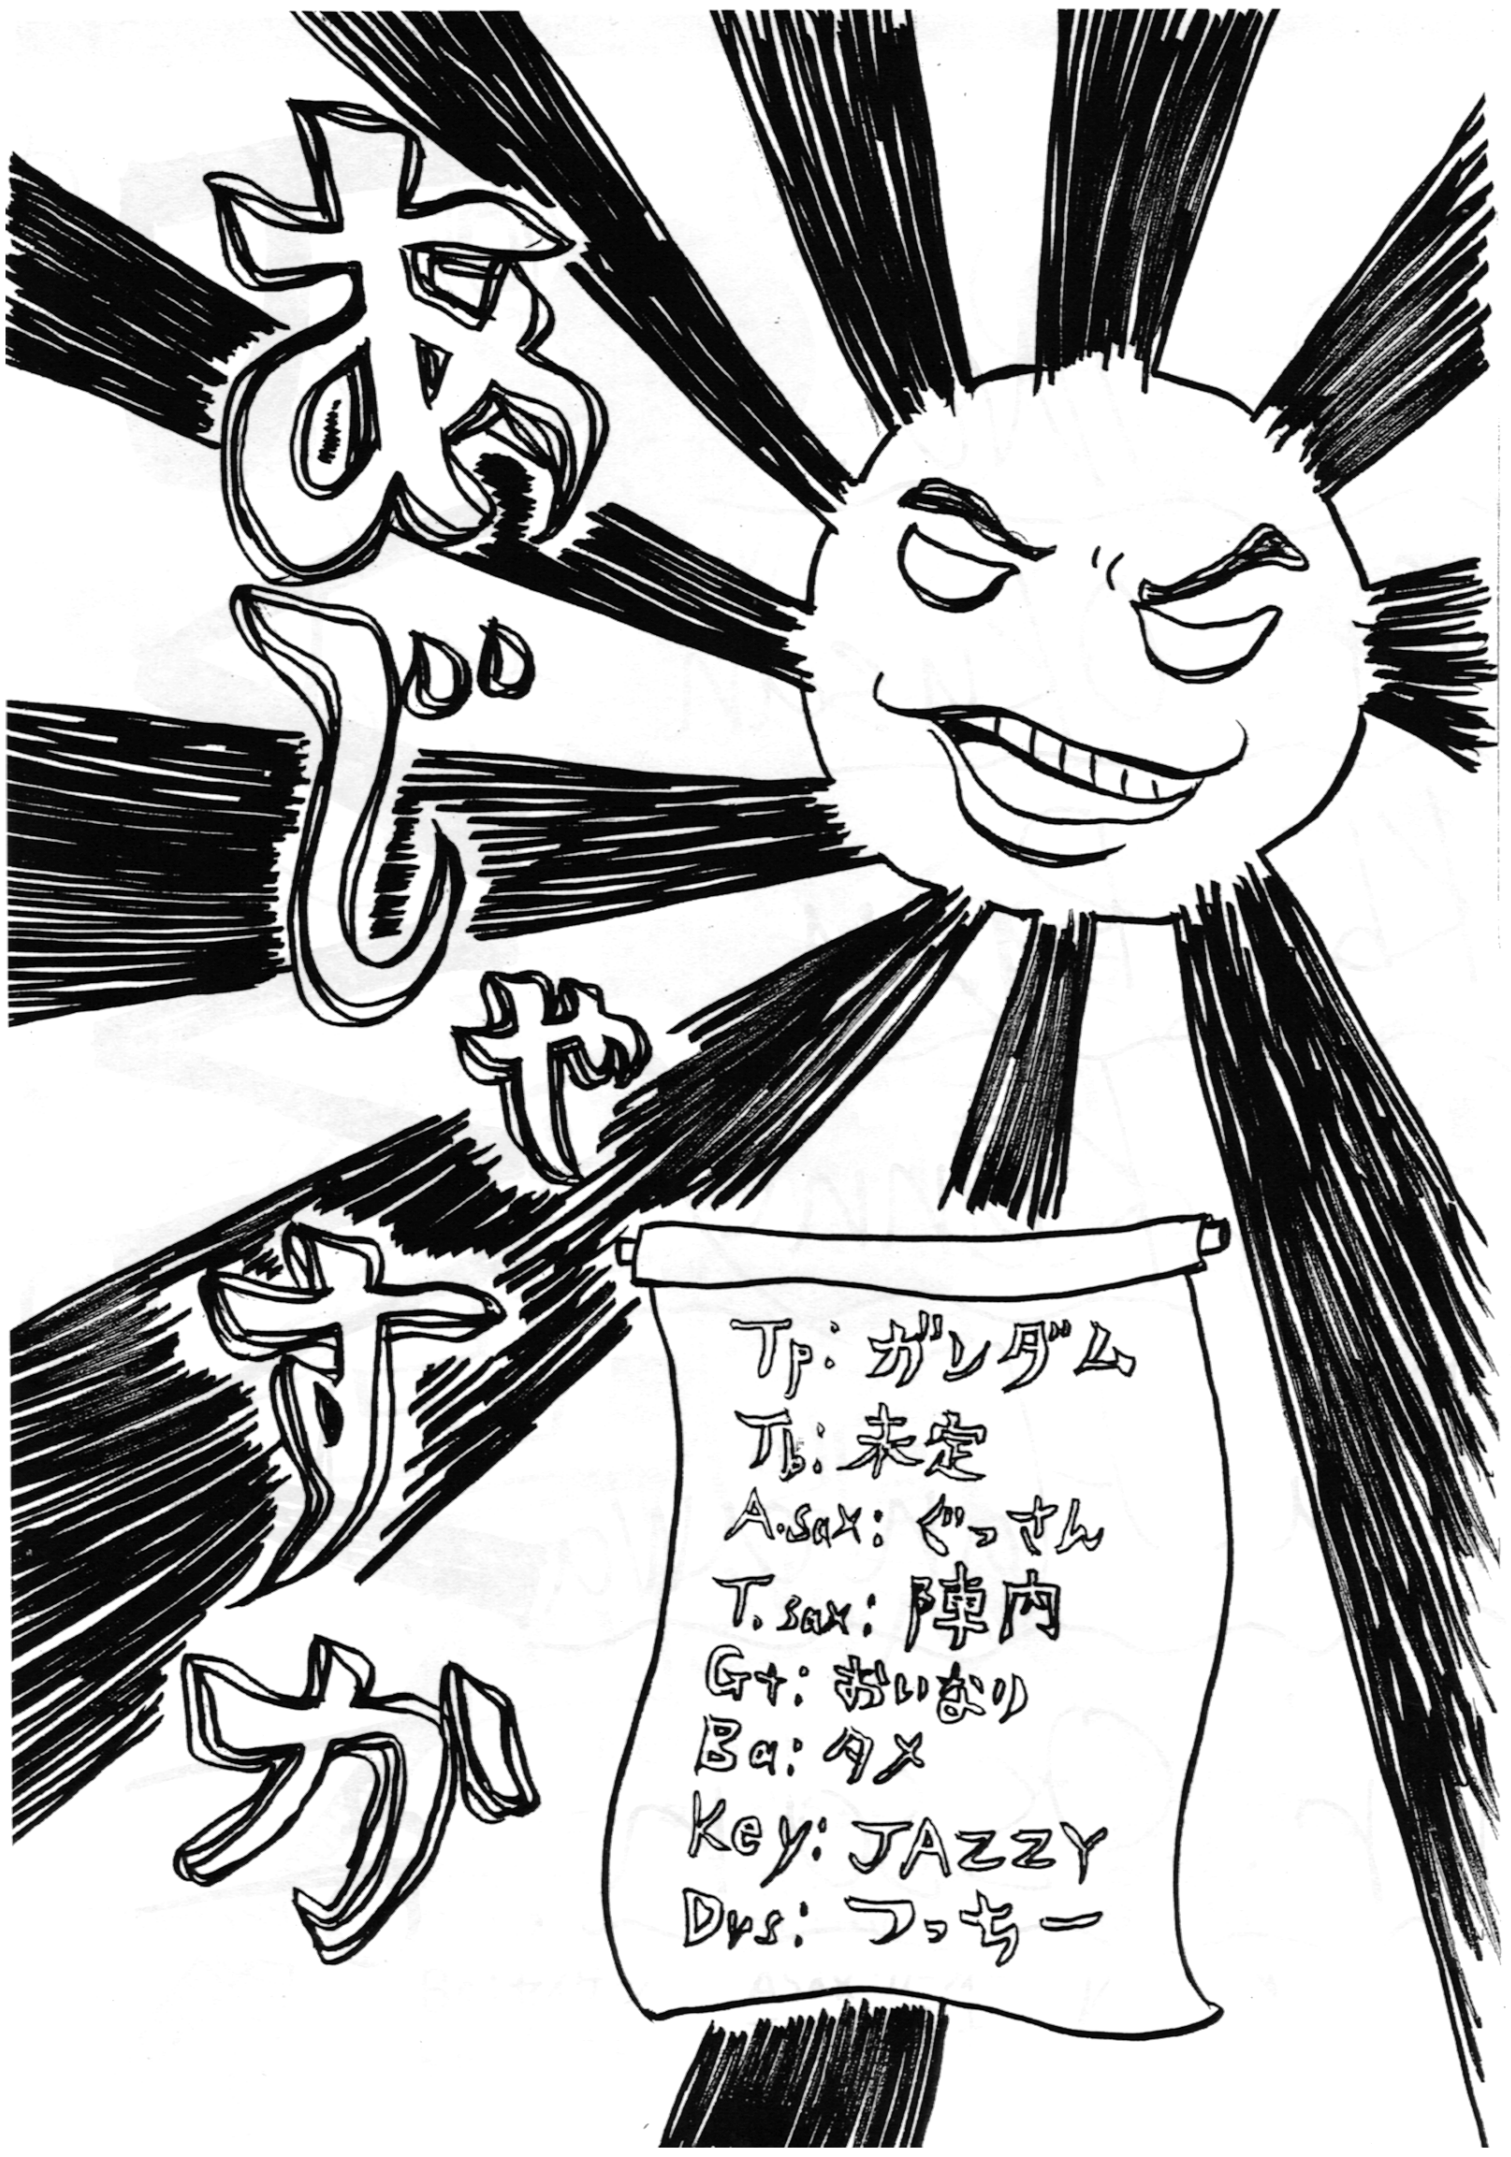 あじゃすか
Tp: ガンダム
Tb: 未定
A.sax: ぐっさん
T.sax: 陣内
Gt: おいなり
Ba: タメ
Key: JAZZY
Drs: つっちー